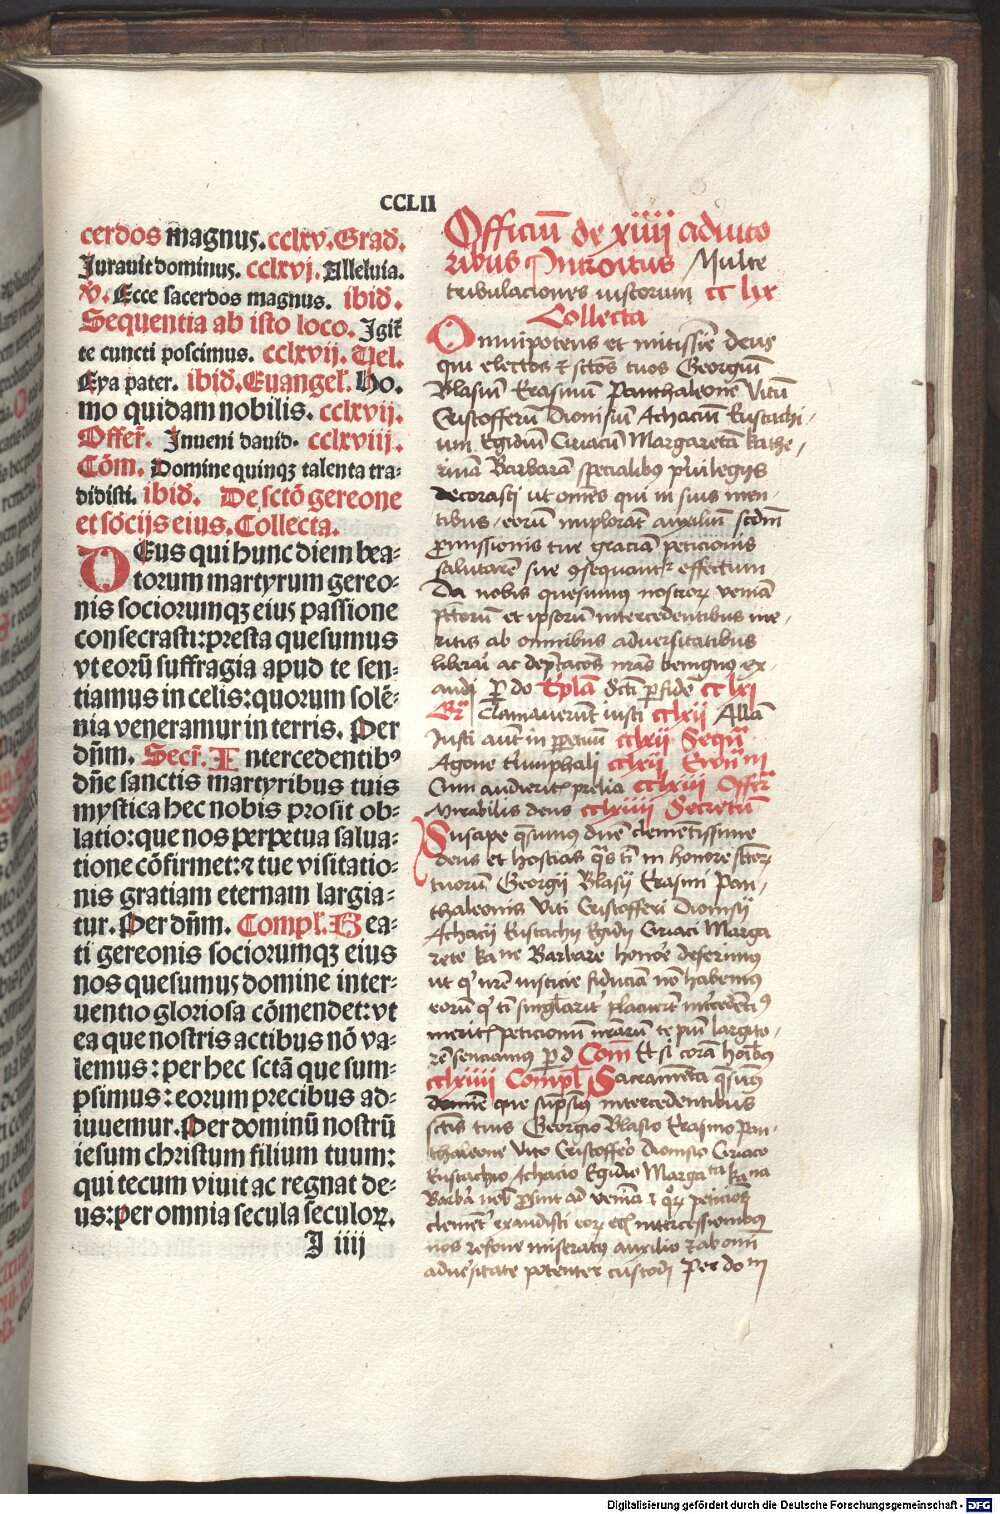 CCLII
cerdos magnus. cclxv. Grad̄.
Jurauit dominus. cclxvj. Alleluia.
V̄. Ecce sacerdos magnus. ibid̄.
Sequentia ab isto loco. Jgit̄
te cuncti poscimus. cclxvij. Uel.
Eya pater. ibid̄. Euangel̄. Ho-
mo quidam nobilis. cclxvij.
Offer̄. Jnueni dauid. cclxviij.
Cōm. Domine quinqꝫ talenta tra-
didisti. ibid̄. De sctō gereone
et socijs eius. Collecta.
DEus qui hunc diem bea-
torum martyrum gereo-
nis sociorumqꝫ eius passione
consecrasti: presta quesumus
vt eorū suffragia apud te sen-
tiamus in celis: quorum solē-
nia veneramur in terris. Per
dn̄m. Secr̄. Intercedentibꝰ
dn̄e sanctis martyribus tuis
mystica hec nobis prosit ob-
latio: que nos perpetua salua-
tione cōfirmet: ⁊ tue visitatio-
nis gratiam eternam largia-
tur. Per dn̄m. Compl. Bea-
ti gereonis sociorumqꝫ eius
nos quesumus domine inter-
uentio gloriosa cōmendet: vt
ea que nostris actibus nō va-
lemus: per hec sctā que sum-
psimus: eorum precibus ad-
iuuemur. Per dominū nostrū
iesum christum filium tuum:
qui tecum viuit ac regnat de-
us: per omnia secula seculoꝝ.
J iiij
Officiū de xiiij adiuto
ribus Introitus Multe
tribulaciones iustorum cc lix
Collecta
Omnipotens et mitissīe deus
qui electos ⁊ sctōs tuos Georgiū
Blasiū Erasmū Panthaleonē Vitū
Cristofferū Dionisiū Achaciū Eustachi-
um Egidiū Ciriacū Margaretā Kathe-
rinā Barbarā specialibꝰ priuilegijs
decorasti ut om̄es qui in suis neces-
tibus eorū implorāt auxiliū scdm̄
promissionis tue graciā peticionis
salutarē sue ꝯsequantʳ effectum
Da nobis quesumus nostroꝝ veniā
pctōrū et ipsorū intercedentibus me-
ritis ab omnibus aduersitatibus
liberari ac deprecacōes nrās benignꝰ ex-
audi ꝑ do Ep̄lā Scti ꝑ fidē cc lxi
Gr̄ Clamauerūt iusti cclxij Allā
Justi aūt in ꝑpetuū cclxij Seqn̄
Agone triumphali cclxij Ewā
Cum audieritis prelia cclxiij Offer̄
Mirabilis deus cclxiiij Secretū
Suscipe qs̄umus dn̄e clementissime
deus et hostias qs̄ tī in honorē sctōꝝ
tuorū Georgij Blasij Erasmi Pan-
thaleonis Viti Cristofferi Dionisij
Achacij Eustachij Egidij Ciriaci Marga
rete Kaᵗʰᵉ Barbare honorē deferimꝰ
ut qͥ nrē iusticie fiduciā nō habemꝰ
eorū qͥ tī singlarit̄ placuerūt intercedētiꝰ
meritis peticionū nrārū te piū largito-
rē senciamus ꝑ d Cōm Et si corā hoībꝰ
cclxiiij Compl̄ Sacramēta qs̄umꝰ
domīe que sūpsimꝰ intercedentibus
sctīs tuis Georgio Blasio Erasmo Pan-
thaleone Vito Cristoffero Dionisio Ciriaco
Eustachio Achacio Egidio Margaᵗᵃ Kaⁿᵃ
Barbā nob̄ prosint ad veniā ⁊ qͦꝝ peticiōes
clementʳ exaudisti eoꝝ ec̄ intercessionibꝰ
nos refoue miseratꝰ auxilio ⁊ ab omī
aduersitate potenter custodi Per do m
Digitalisierung gefördert durch die Deutsche Forschungsgemeinschaft - DFG